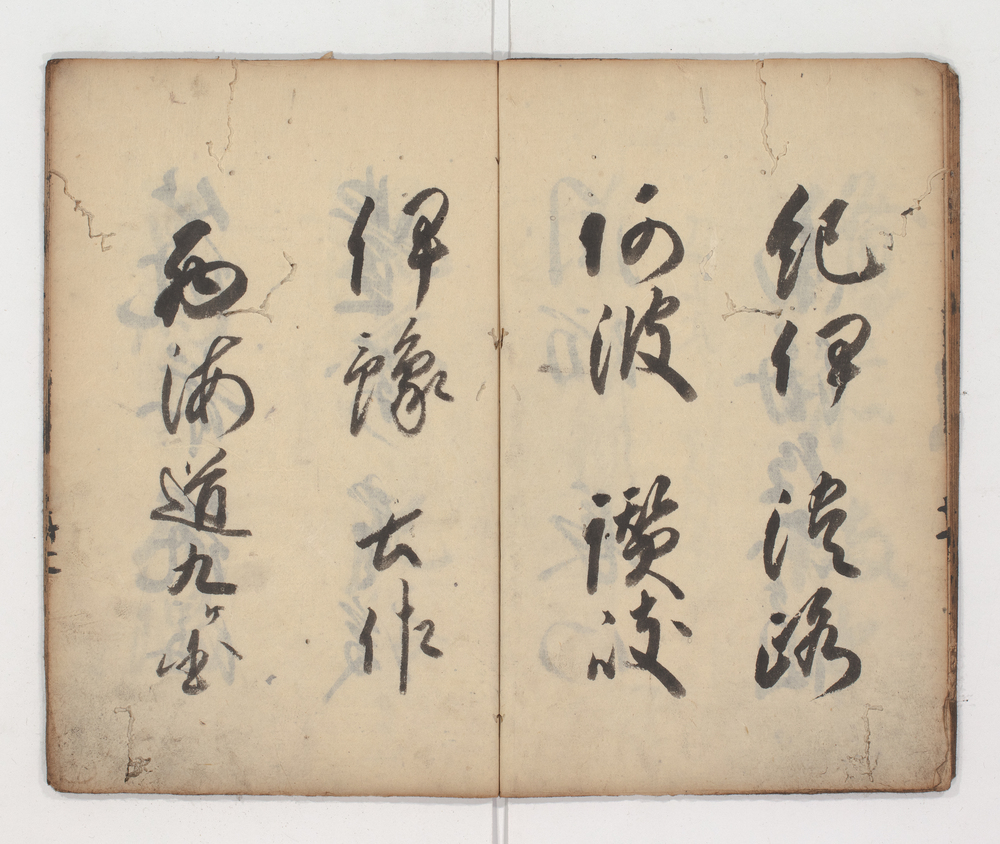 紀伊 淡路
阿波 讃岐
伊豫 土佐
西海道九ケ国